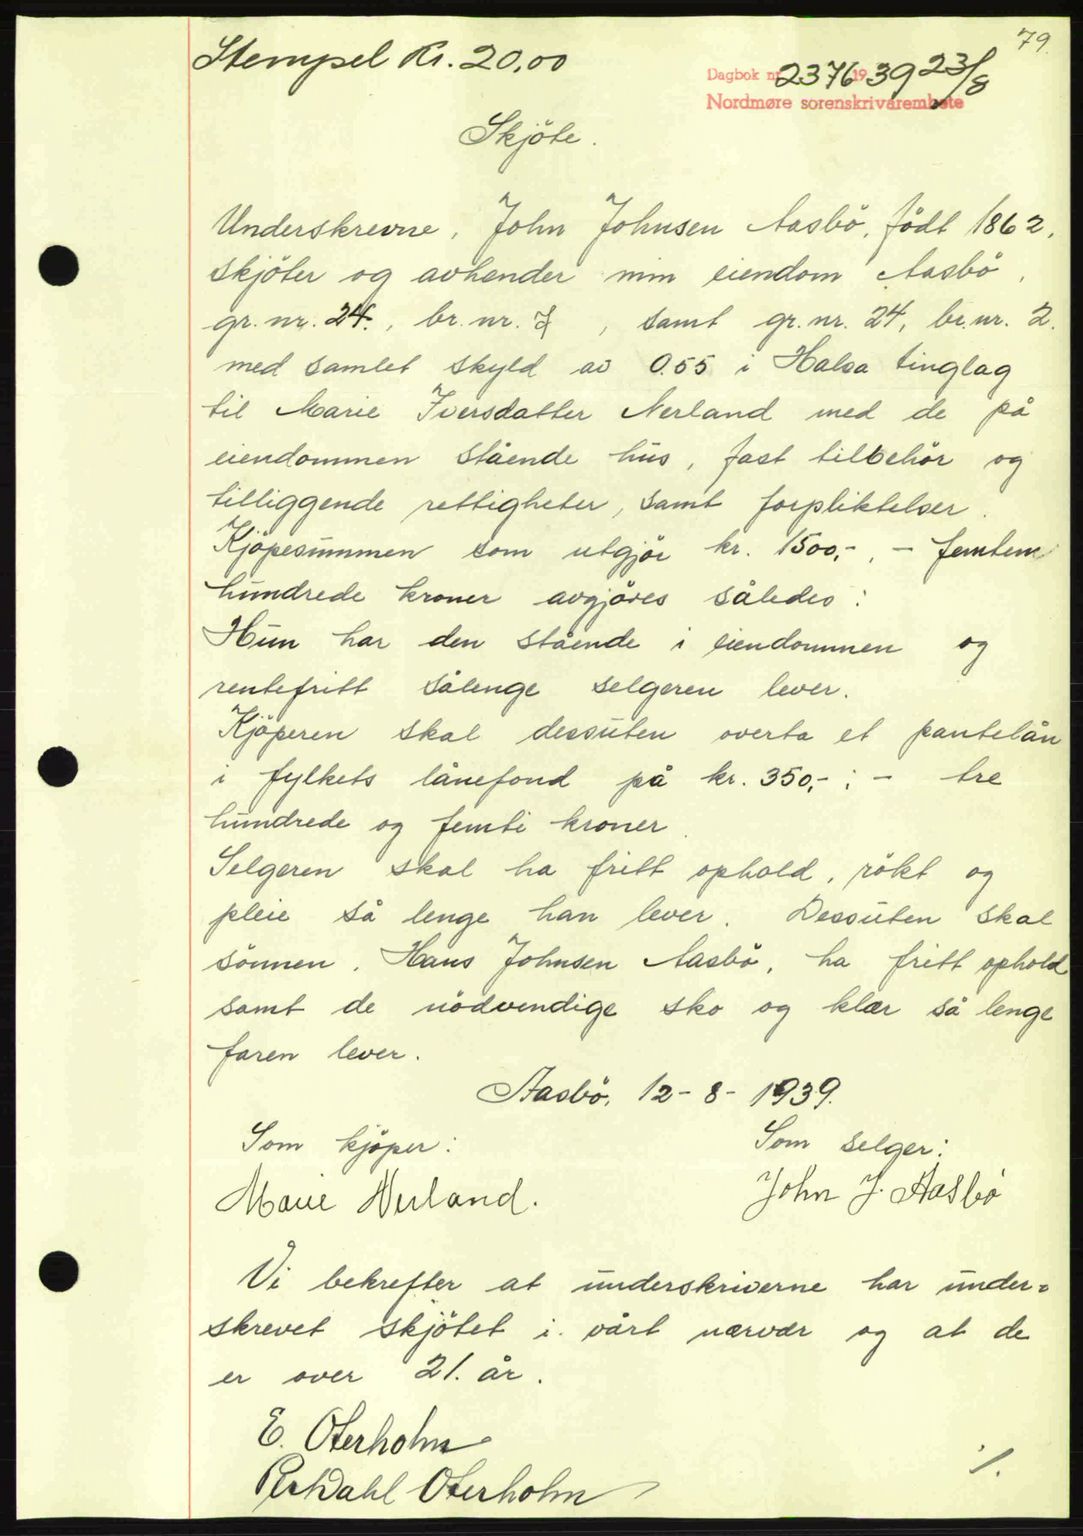 79.
Stempel Kr. 20.00
Dagbok nr. 2376 1939 23/8
Nordmøre sorenskrivarembete
Skjöte.
Underskrevne, John Johnsen Aasbö, födt 1862,
skjöter og avhender min eiendom Aasbö,
gr. nr. 24., br. nr. 7, samt gr. nr. 24, br. nr. 2.
med samlet skyld av 0.55 i Halsa tinglag
til Marie Iversdatter Nerland med de på
eiendommen stående hus, fast tilbehör og
tilliggende rettigheter, samt forpliktelser.
Kjöpesummen som utgjör kr. 1500,-, - femten
hundrede kroner avgjöres således:
Hun har den stående i eiendommen og
rentefritt sålenge selgeren lever.
Kjöperen skal dessuten overta et pantelån
i fylkets lånefond på kr. 350,- ; - tre
hundrede og femti kroner.
Selgeren skal ha fritt ophold, rökt og
pleie så lenge han lever. Dessuten skal
sönnen, Hans Johnsen Aasbö, ha fritt ophold
samt de nödvendige sko og klær så lenge
faren lever.
Aasbö, 12-8-1939.
Som kjöper: Som selger:
Marie Nerland. John J. Aasbö
Vi bekrefter at underskriverne har under=
skrevet skjötet i vårt nærvær og at de
er over 21. år.
E. Oterholm
Dahl Oterholm
./.